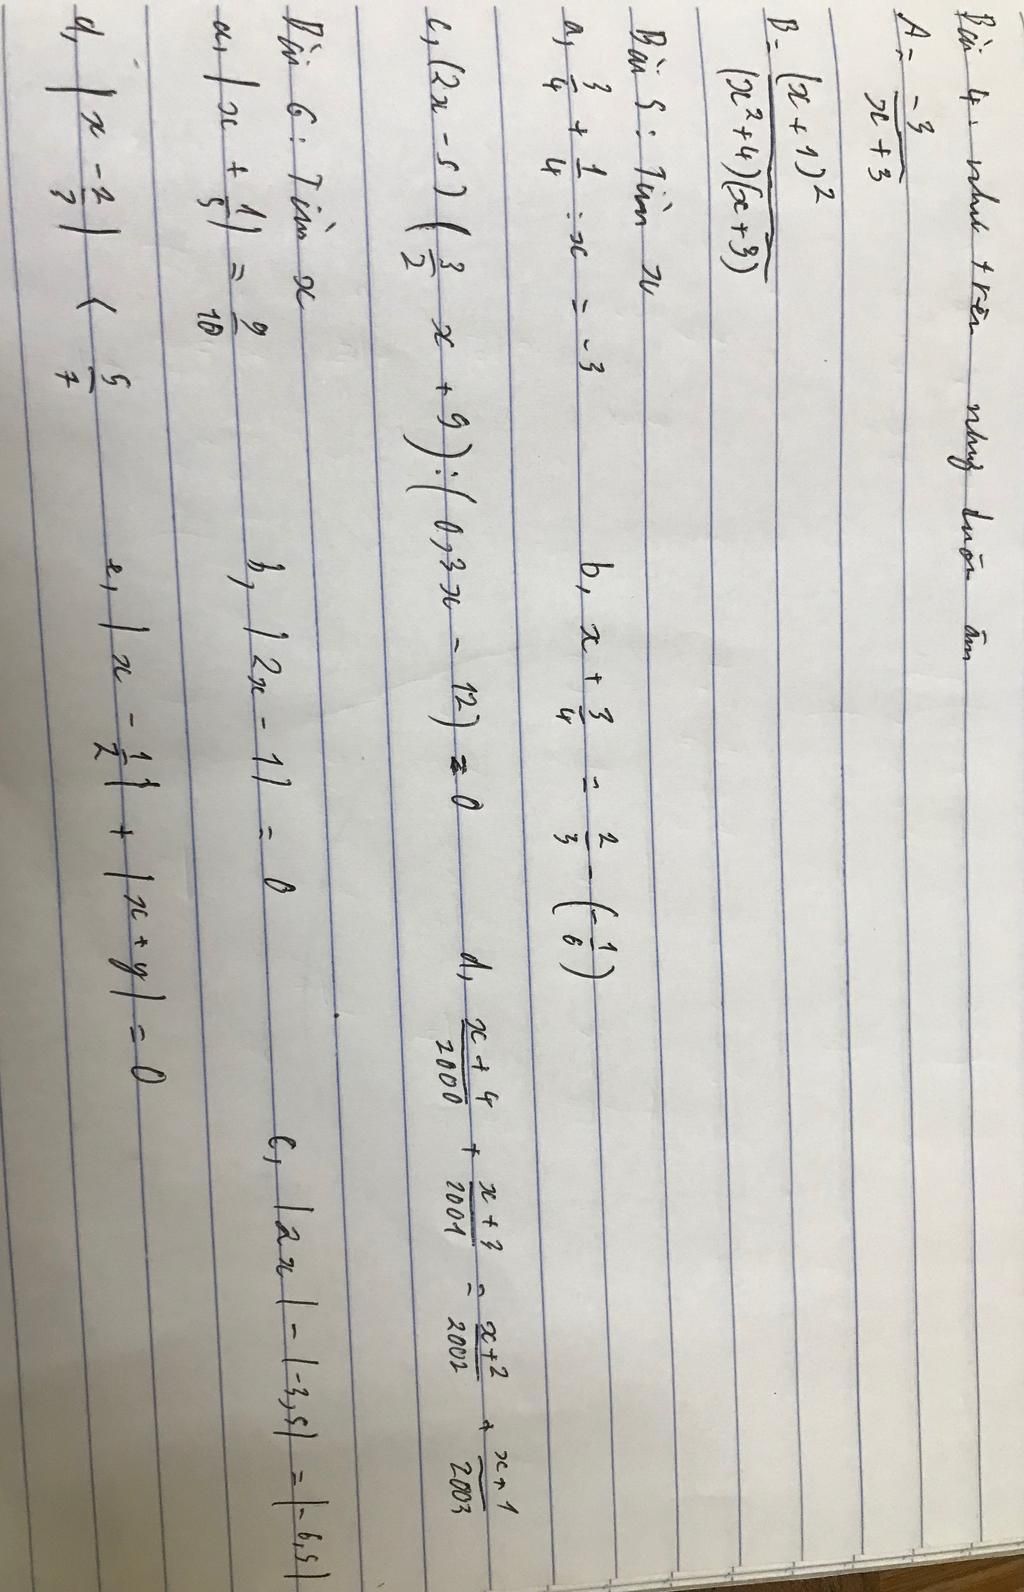 Bài 4: như trên nhưg luôn âm
A = -3/(x+3)
B = (x+1)²/((x²+4)(x+3))
Bài 5: Tìm x
a, 3/4 + 1/4 : x = -3 b, x + 3/4 = 2/3 - (-1/6)
c, (2x - 5)(3/2 x + 9) : (0,3x - 12) = 0 d, (x+4)/2000 + (x+3)/2001 = (x+2)/2002 + (x+1)/2003
Bài 6: Tìm x
a, |x + 1/5| = 9/10 b, |2x - 1| = 0 c, |2x| - |-3,5| = |-6,5|
d, |x - 2/3| < 5/7 e, |x - 1/2| + |x + y| = 0